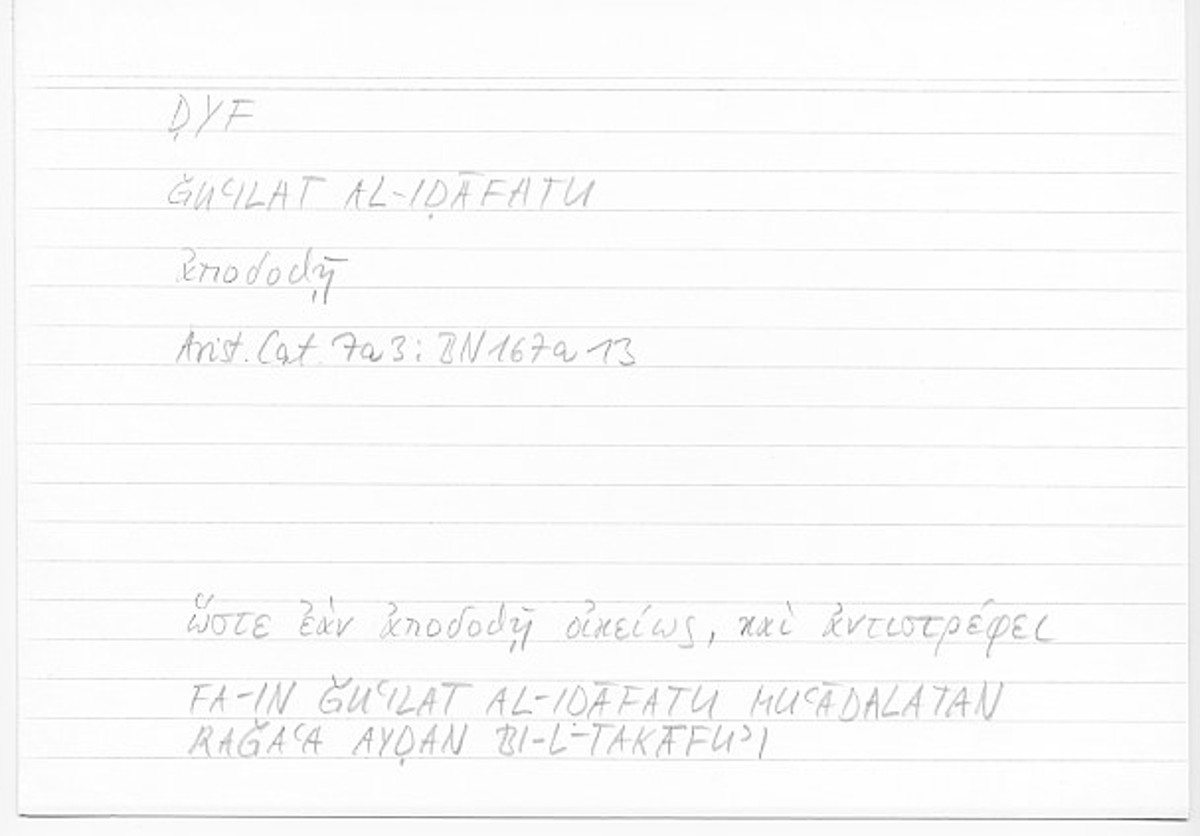 ḌYF
ǦUʿILAT AL-IḌĀFATU
ἀποδοθῇ
Arist. Cat. 7a3: BN167a13
ὥστε ἐὰν ἀποδοθῇ οἰκείως, καὶ ἀντιστρέφει
FA-IN ǦUʿILAT AL-IḌĀFATU MUʿĀDALATAN
RAǦAʿA AYḌAN BI-L-TAKĀFUʾI